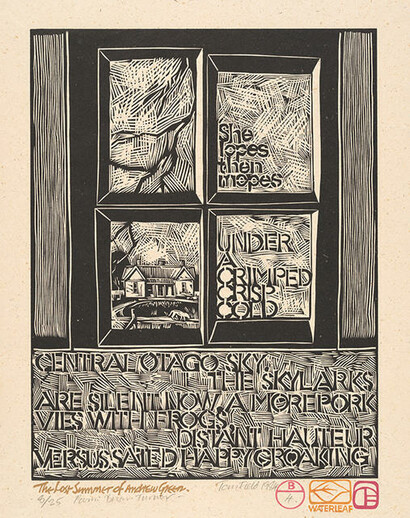 She
lopes
then
mopes
UNDER
A
CRIMPED
CRISP
COLD
CENTRAL OTAGO SKY.
THE SKYLARKS
ARE SILENT NOW, A MOREPORK
VIES WITH FROGS
DISTANT HAUTEUR
VERSUS SATED HAPPY CROAKING
The Lost Summer of Andrew Green.
Poem: Brian Turner
Tom Field
B
4.
WATERLEAF